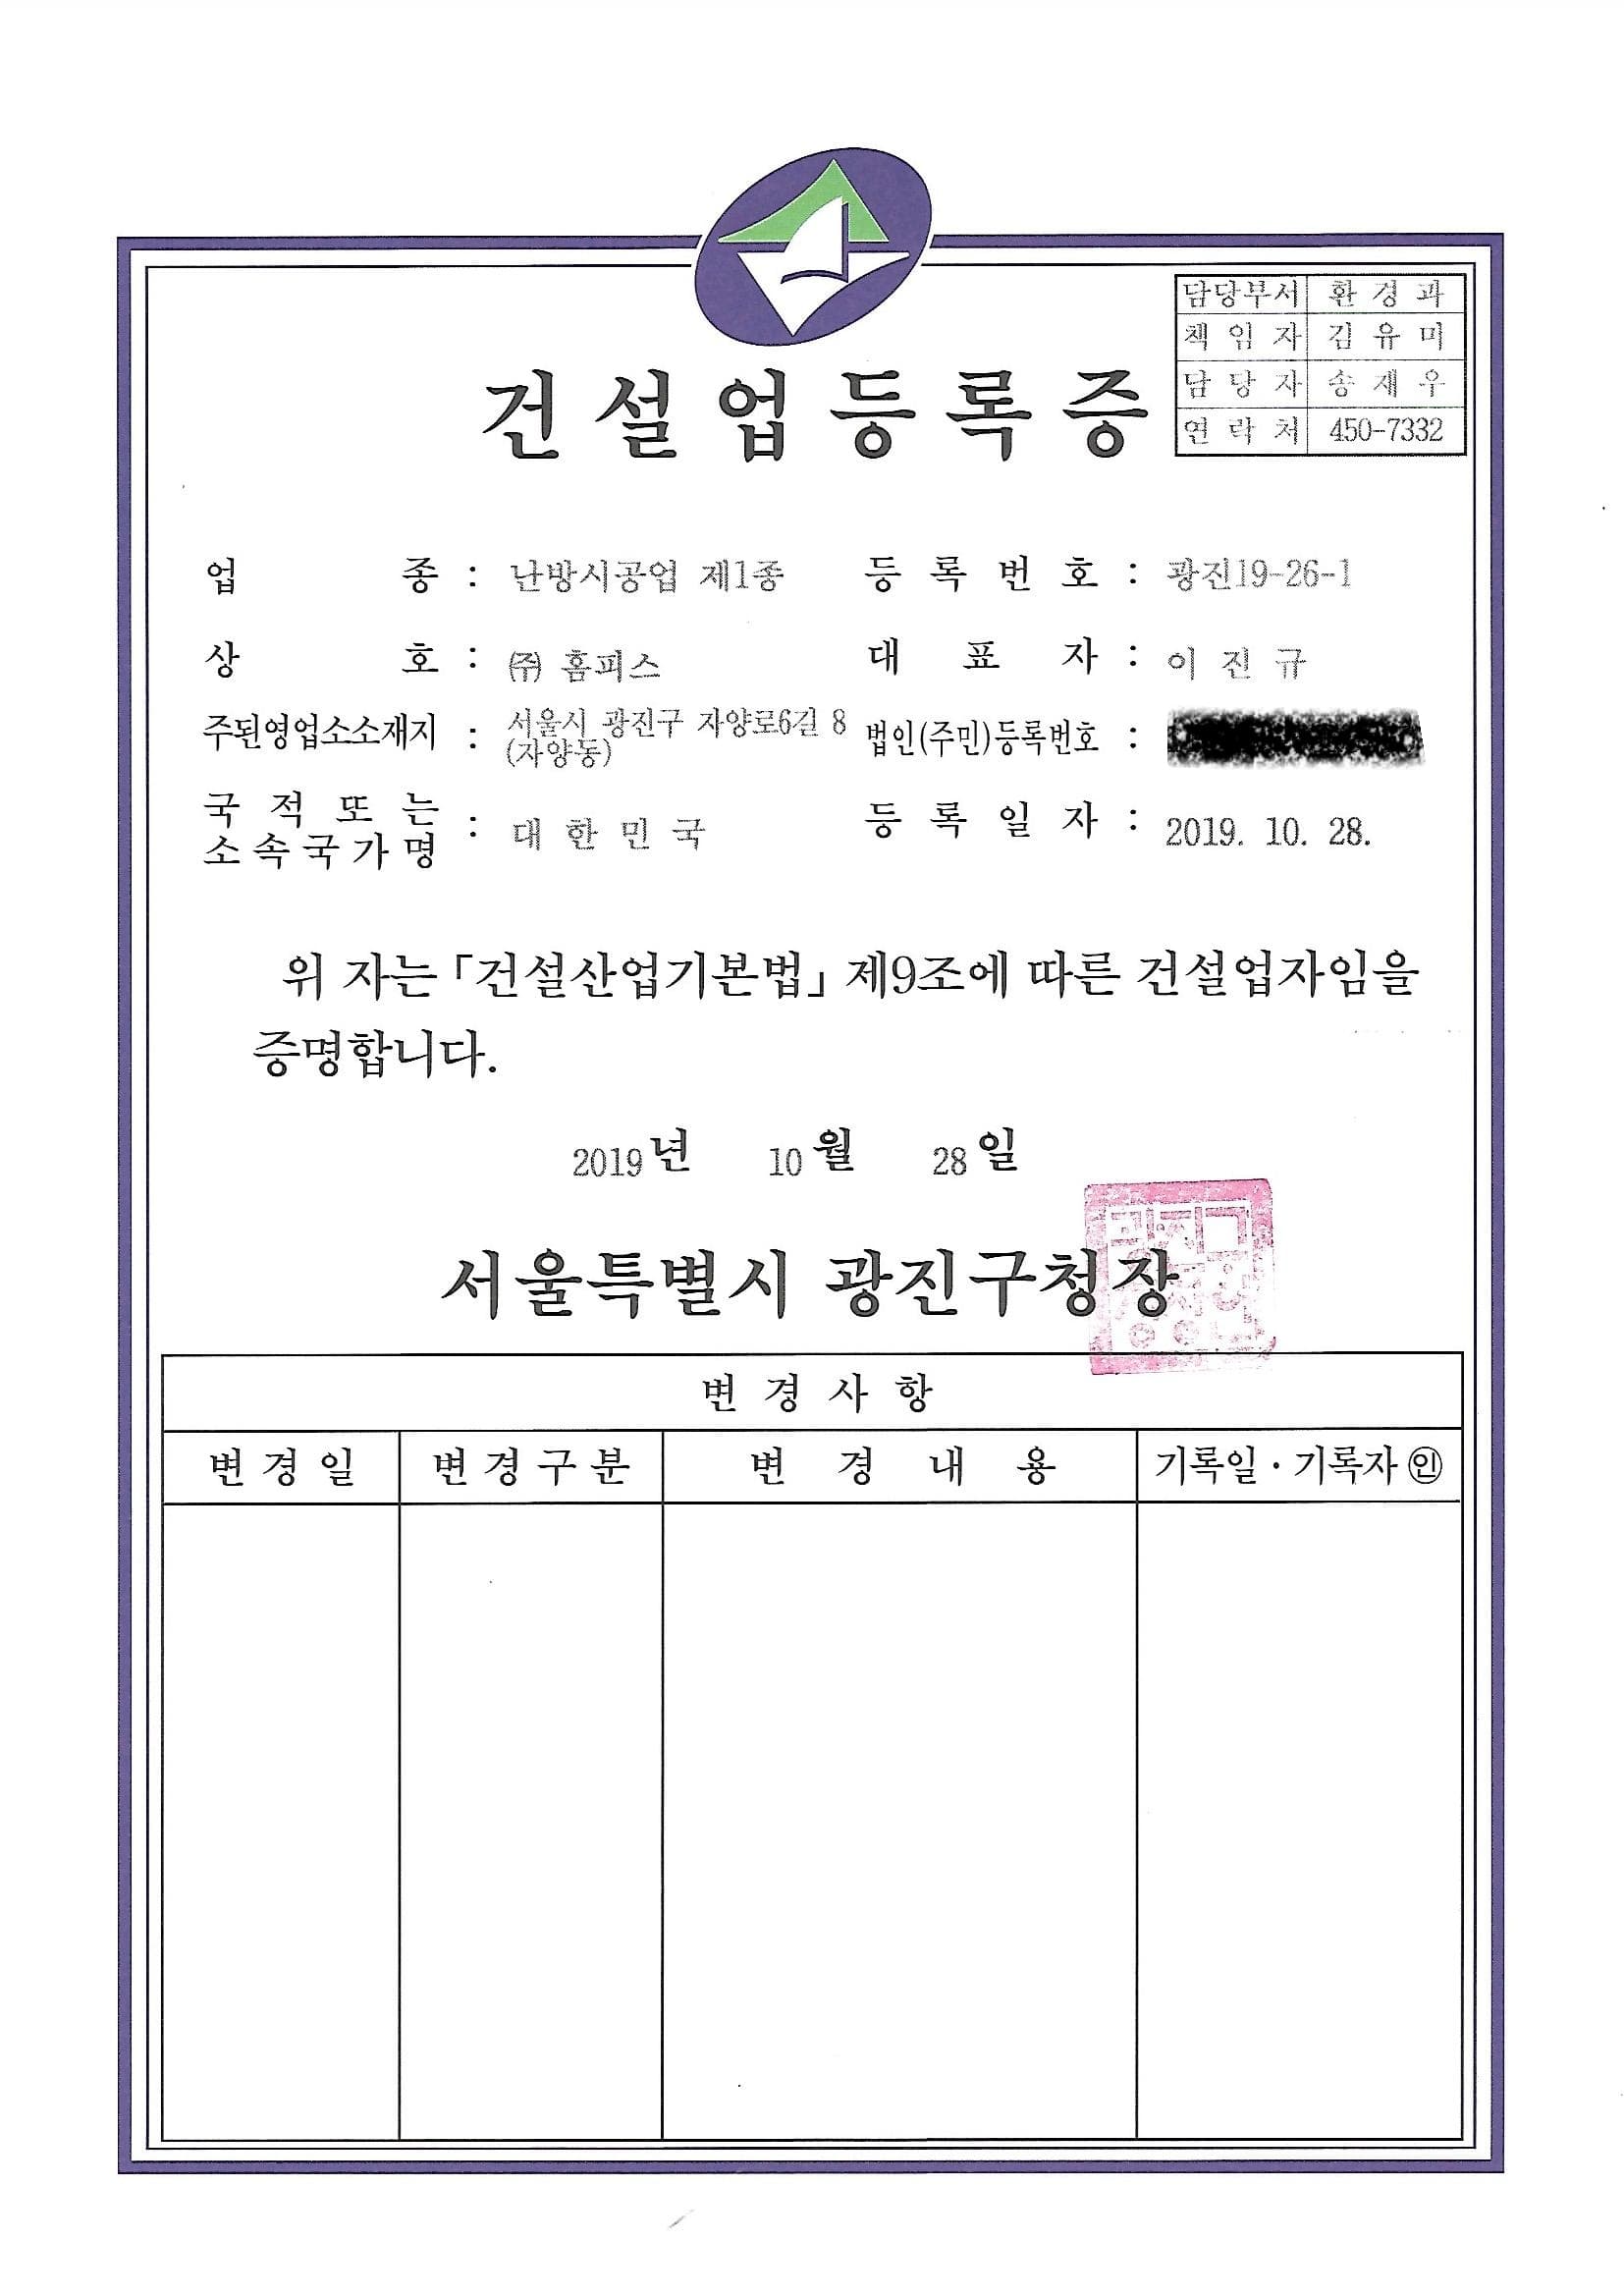 담당부서 환 경 과
책 임 자 김 유 미
담 당 자 송 재 우
연 락 처 450-7332
건설업등록증
업 종 : 난방시공업 제1종 등 록 번 호 : 광진19-26-1
상 호 : ㈜ 홈피스 대 표 자 : 이 진 규
주된영업소소재지 : 서울시 광진구 자양로6길 8
(자양동)
법인(주민)등록번호 :
국 적 또 는
소속국가명 : 대 한 민 국 등 록 일 자 : 2019. 10. 28.
위 자는 「건설산업기본법」 제9조에 따른 건설업자임을
증명합니다.
2019년 10월 28일
서울특별시 광진구청장
변 경 사 항
변 경 일 변 경 구 분 변 경 내 용 기록일 · 기록자 ㊞